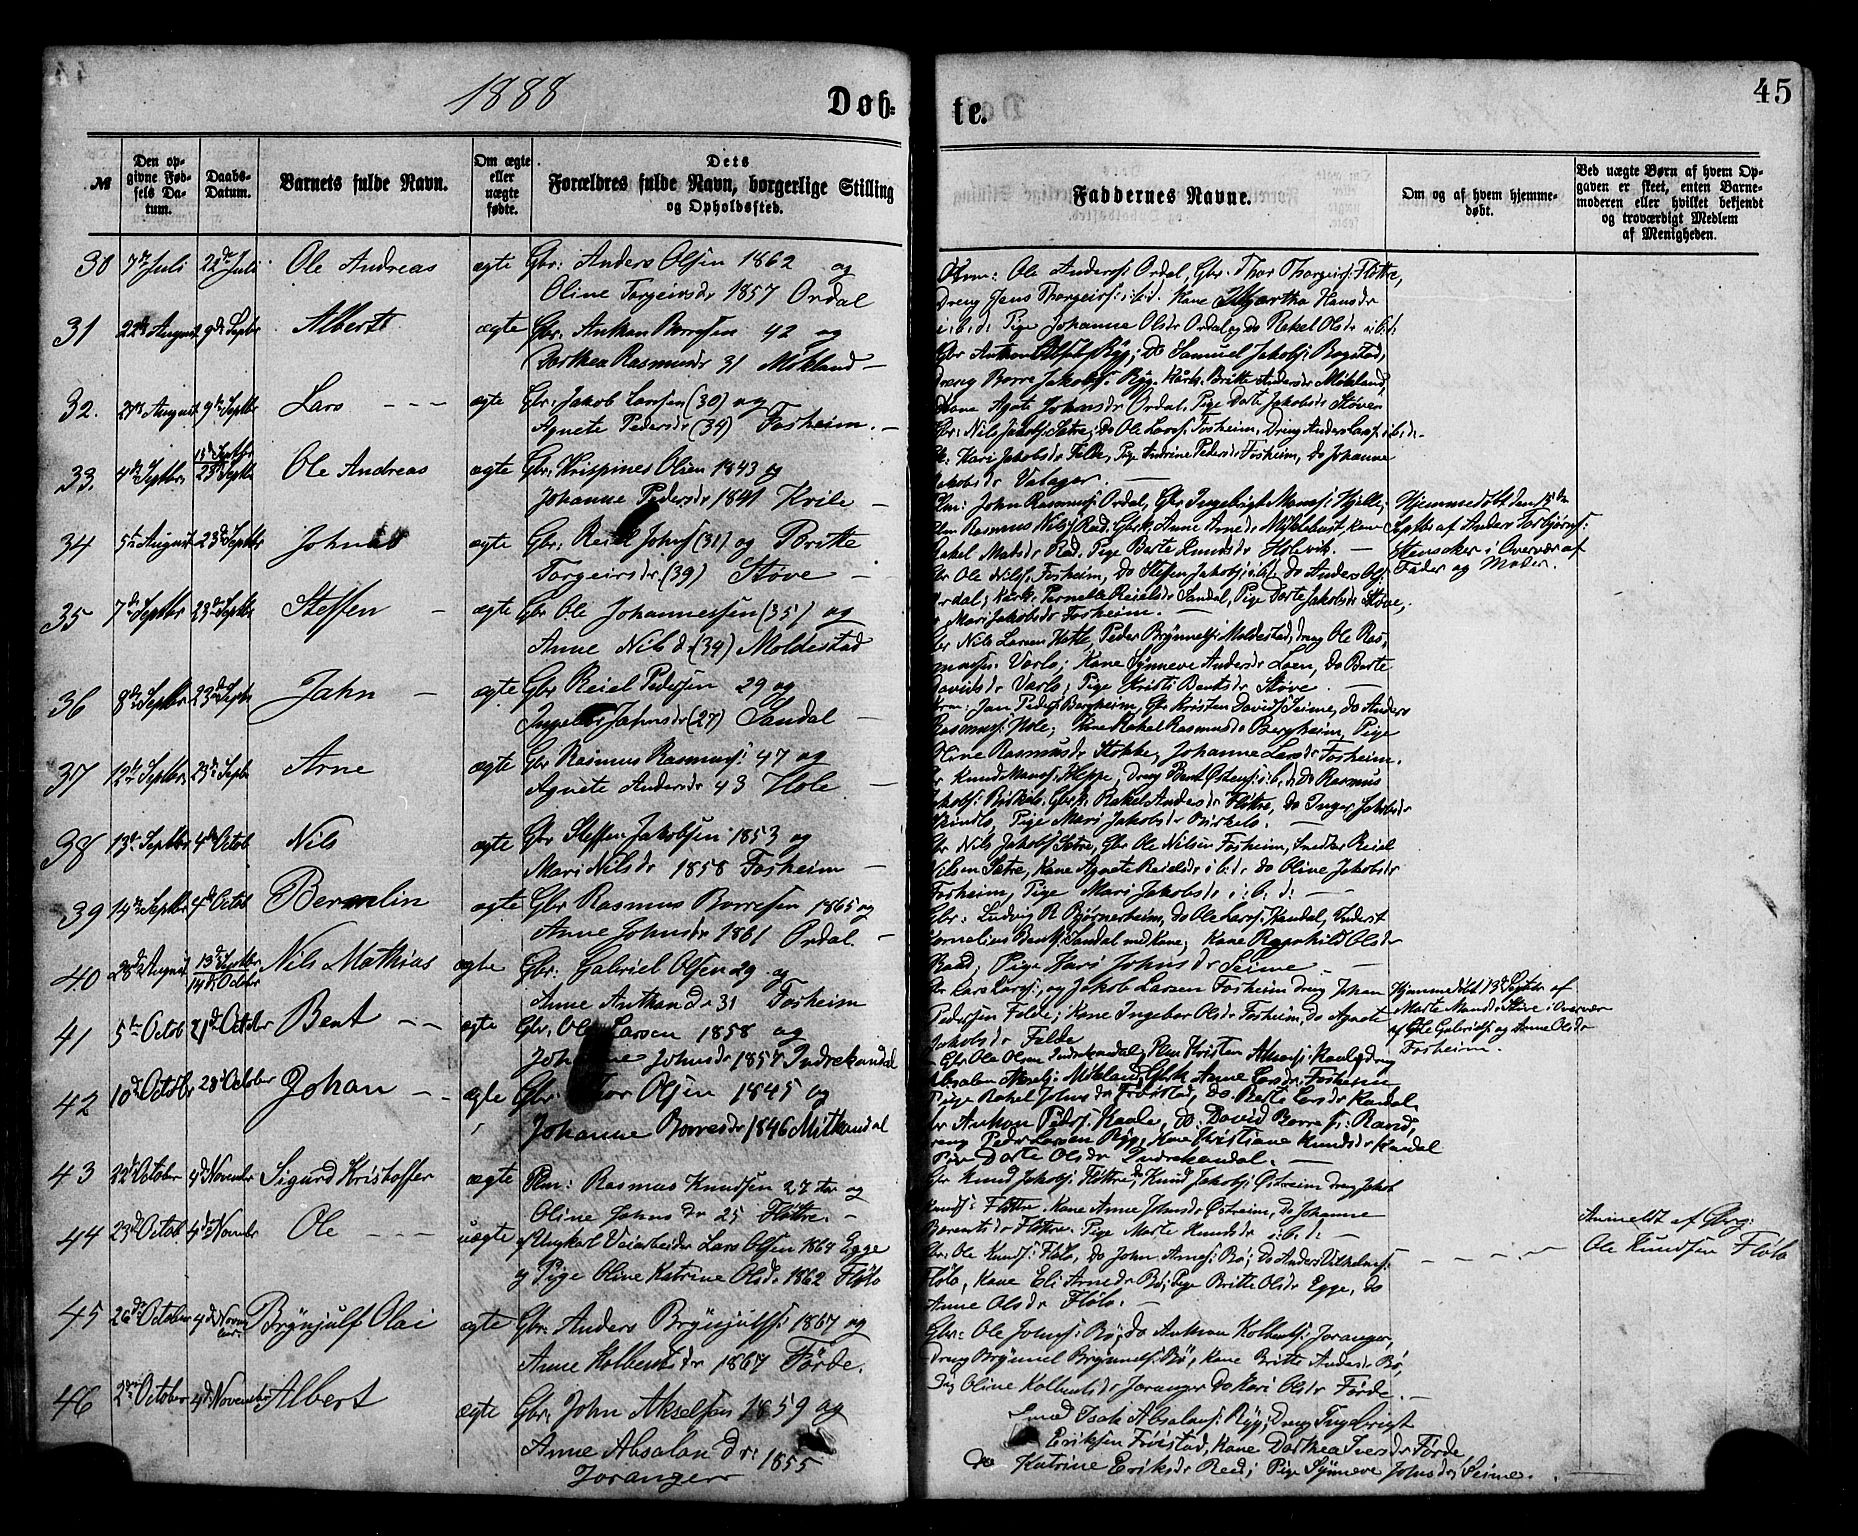 1888
Døb-
te.
45
№
Den op-
givne Fød-
sels Da-
tum.
Daabs-
Datum.
Barnets fulde Navn.
Om ægte
eller
uægte
født.
Dets
Forældres fulde Navn, borgerlige Stilling
og Opholdssted.
Faddernes Navne.
Om og af hvem hjemme-
døbt.
Ved uægte Børn af hvem Op-
gaven er skeet, enten Barne-
moderen eller hvilket bekjendt
og troværdigt Medlem
af Menigheden.
30 7de Juli 21de Juli Ole Andreas ægte Gbr: Anders Olsen 1862 og
Oline Torgeirsdr 1857 Ordal
Ole Anders: Ordal, Gbr. Thor Thorgeirs: Fløtre,
Dreng Jens Thorgeirs: i.b.d. Kone Martha Hansdr
i.b.d: Pige Johanne Olsdr Ordal, og do Rakel Olsdr i.b.d:
31 22de August 9de Septbr Albert ægte Gbr. Anthon Borresen 42 og
Dorthea Rasmusdr 31 Mykland -
Gbr Anthon Olsen Ryg; Do Samuel Jakobs: Bogstad,
Dreng Borre Jakobs: Ryg. Britte Andersdr Mykland,
Kone Agate Johnsdr Ordal. Pige Dorte Jakobsdr Støve.
32. August 9de Septbr Lars - - - ægte Gbr: Jakob Larsen (30) og
Agnete Pedersdr (34) Fosheim. -
Gbr: Nils Jakobs: Sætre; do Ole Lars: Fosheim, Dreng Anders Lars: i.b.d:
Kari Jakobsdr Felde, Pige Andrine Pedersdr Fosheim, do Johanne
Jakobsdr
33. 4de Septbr 15de Septbr
23de Septbr Ole Andreas ægte Gbr. Krispinus Olsen 1843 og
Johanne Pedersdr 1841 Kvile -
John Rasmus: Ordal, Gbr Ingebrigt Mons: Hjelle,
Rasmus Nils: Rad. Anne Arnedr Myklebust, Kone
Rakel Madsdr Rad. Pige Berte Holevik. -
Hjemmedøbt den 15de
Septbr af Anders Torbjørns:
Stensaker i Overvær af
Fader og Moder.
34 5te August 23de Septbr Johnas ægte Gbr. Reiel Johns: (31) og Britte
Torgeirsdr. (39) Støve -
Gbr Ole Nils: Fosheim, do Steffen Jakobs: i.b.d. do Anders Ols:
Ordal; Pernelle Reielsdr Sandal, Pige Dorte Jakobsdr Støve,
Mari Jakobsdr Fosheim. -
35 7de Septbr 23de Septbr Steffen - ægte Gbr Ole Johannessen (35) og
Anne Nilsd. (34) Moldestad
Gbr Nils Larsen Hetle, Peder Brynnels: Moldestad, dreng Ole Ras-
mus: Vorlo; Kone Synneve Andersdr Loen, do Berte
Davidsdr Vorlo; Pige Kristi Bentsdr Støve. -
36 8de Septbr 23de Septbr Jahn - ægte Gbr Reiel Pedersen 29 og
Ingebor Johnsdr (27) Sandal -
Jan Peders: Bergheim, Gbr Kristen Davids: Seime, do Anders
Rasmus: Hole; Kone Rakel Rasmusdr Bergheim, Pige
Oline Rasmusdr Stokke, Johanne Larsdr Fosheim.
37 12te Septbr 23de Septbr Arne ægte Gbr Rasmus Rasmus: 47 og
Agnete Andersdr 43 Hole -
Gbr Knud Mons: Heppe, Dreng Bent Østens: i.b.d: do Rasmus
Jakobs: Birkelo. Rakel Andersdr Fløtre, do Inger Jakobsdr
Pige Mari Jakobsdr Birkelo. -
38 13de Septbr 4de Octob. Nils ægte Gbr Steffen Jakobsen 1853 og
Mari Nilsdr 1858 Fosheim -
Gbr Nils Jakobs: Sætre, Gbr Ole Nilsen Fosheim, Smedkar Reiel
Nilsen Sætre, Kone Agnete Reielsdr i.b.d: do Oline Jakobsdr
Fosheim, Pige Mari Jakobsdr i.b.d: -
39 14de Septbr 4de Octob Bermelin ægte Gbr Rasmus Borresen 1865 og
Anne Johnsdr 1861 Ordal. -
Gbr: Ludvig R. Bjørnereim, do Ole Lars: Kandal, Inderst
Cornelius Bent: Sandal med Kone; Kone Ragnhild Olsdr
Raad; Pige Kari Johnsdr Seime -
40 28de August 13de Septbr
14de October Nils Mathias ægte Gbr: Gabriel Olsen 29 og
Anne Anthondr 31 Fosheim
Gbr Lars Lars: og Jakob Larsen Fosheim dreng Johan
Pedersen Felde; Kone Ingebor Olsdr Fosheim, do Agnete
Jakobsdr Felde
Hjemmedøbt 13de Septbr af
Marte Monsdr Støve i Overvær
af Ole Gabriels: og Anne Olsdr
Fosheim.
41 5te Octob 21de October Bent - - ægte Gbr: Ole Larsen 1858 og
Johanne Johnsdr 1857 Indrekandal
Gbr Ole Olsen Indrekandal, Kristen Aksels: dreng
Absalon Aksels: Mykland, Anne Larsdr Fosheim
Pige Rakel Johnsdr Frøistad, do. Berte Larsdr Kandal.
42 10de Octobr 28de October Johan - - ægte Gbr: Thor Olsen 1845 og
Johanne Borresdr 1846 Mitkandal
Gbr Anthon Peders: Kaale, do. David Borres: Raad,
Dreng Peder Larsen Ryg, Kone Christiane Knudsdr Kandal
Pige Dorte Olsdr Indrekandal. -
43 22de October 4de Novembr Sigurd Kristoffer ægte Plm: Rasmus Knudsen 27 og
Oline Johnsdr 25 Fløtre. -
Gbr Knud Jakobs: Fløtre, do Knud Jakobs: Østreim dreng Jakob
Knuds: Fløtre. Kone Anne Johnsdr Østreim, do Johanne
Berentsdr Fløtre. Pige Marte Knudsdr i.b.d: -
44 23de Octob. 4de Novembr Ole - - - uægte Ungkarl Veiarbeider Lars Olsen 1864 Egge
og Pige Oline Katrine Olsd. 1862 Fløla
Gbr: Ole Knuds: Fløla, do John Arnes: Bø; Do Anders Vilhelms:
Fløla, Kone Eli Arnedr Bø; Pige Britte Olsdr Egge, do
Anne Olsdr Fløla. -
Anmeldt af Gbrg:
Ole Knudsen Fløla
45 26de October 4de Novem
ber. Brynjulf Olai ægte Gbr: Anders Brynjulfs: 1867 og
Anne Kolbentsdr 1867 Førde.
Gbr: Ole Johns: Bø, do Anthon Kolbents: Joranger,
Dreng Brynnel Brynnels: Bø, Kone Britte Andersdr Bø,
Pig Oline Kolbentsdr Joranger Do Kari Olsdr Førde. -
46 2den October 4de November Albert ægte Gbr: John Akselsen 1859 og
Anne Absalondr: 1855
Joranger
Smed Isak Absalons: Ryg; Dreng Ingebrigt
Eriksen Frøistad, Kone Dorthea Iversdr Førde,
Do Katrine Eriksdr Reed; Pige Synneve Johnsdr Seime.